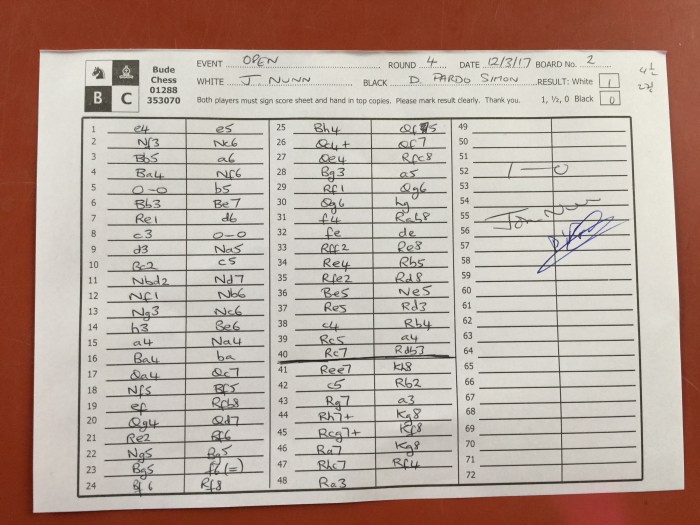 EVENT OPEN ROUND 4 DATE 12/3/17 BOARD No. 2
Bude Chess 01288 353070
B C
WHITE J. NUNN BLACK D. PARDO SIMON RESULT: White 1
Both players must sign score sheet and hand in top copies. Please mark result clearly. Thank you. 1, ½, 0 Black 0
4½
1 e4 e5
2 Nf3 Nc6
3 Bb5 a6
4 Ba4 Nf6
5 0-0 b5
6 Bb3 Be7
7 Re1 d6
8 c3 0-0
9 d3 Na5
10 Bc2 c5
11 Nbd2 Nd7
12 Nf1 Nb6
13 Ng3 Nc6
14 h3 Be6
15 a4 Na4
16 Ba4 ba
17 Qa4 Qc7
18 Nf5 Bf5
19 ef Rfb8
20 Qg4 Qd7
21 Re2 Bf6
22 Ng5 Bg5
23 Bg5 f6 (=)
24 Bf6 Rf8
25 Bh4 Qf5
26 Qc4+ Qf7
27 Qe4 Rfc8
28 Bg3 a5
29 Rf1 Qg6
30 Qg6 hg
31 f4 Rab8
32 fe de
33 Rff2 Re8
34 Re4 Rb5
35 Rfe2 Rd8
36 Be5 Ne5
37 Re5 Rd3
38 c4 Rb4
39 Rc5 a4
40 Rc7 Rdb3
41 Ree7 Kh8
42 c5 Rb2
43 Rg7 a3
44 Rh7+ Kg8
45 Rcg7+ Kf8
46 Ra7 Kg8
47 Rhc7 Rf4
48 Ra3
49
50
51
52 1-0
53
54
55 John Nunn
56
57
58
59
60
61
62
63
64
65
66
67
68
69
70
71
72